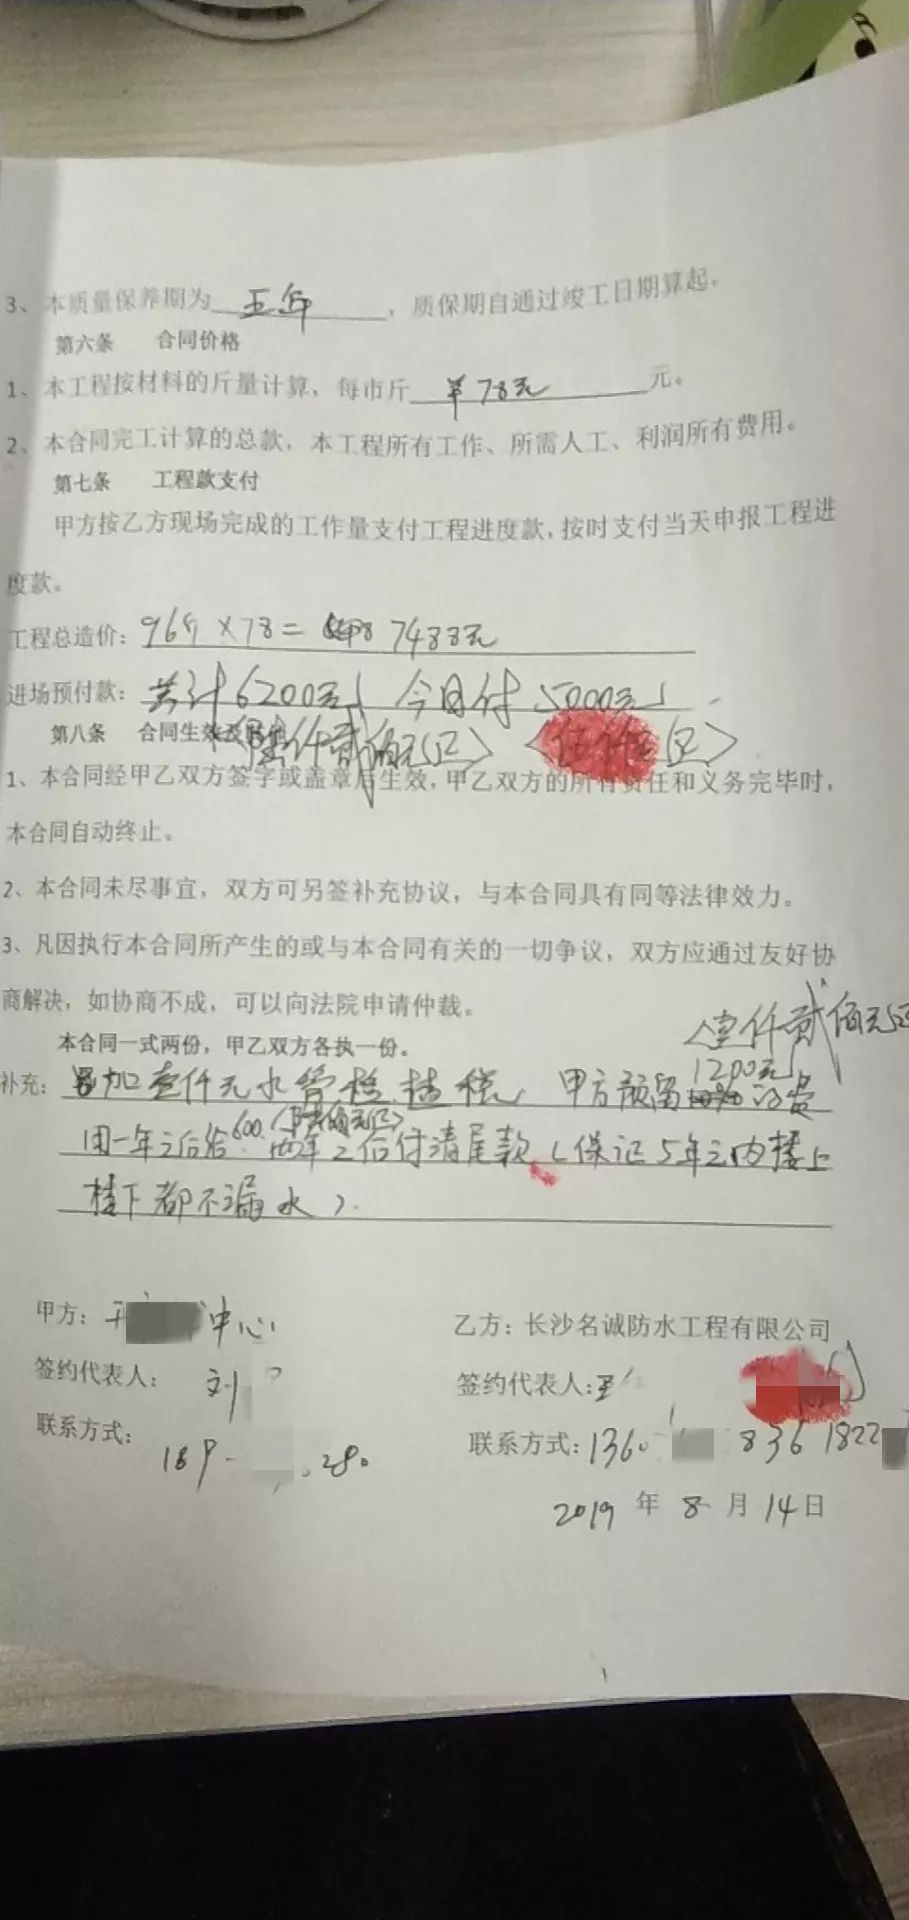 3、本质量保养期为 五年 ，质保期自通过竣工日期算起。
第六条 合同价格
1、本工程按材料的斤量计算，每市斤 ¥78元 元。
2、本合同完工计算的总款，本工程所有工作、所需人工、利润所有费用。
第七条 工程款支付
甲方按乙方现场完成的工作量支付工程进度款，按时支付当天申报工程进
度款。
工程总造价：96斤×78= 7488元
进场预付款：共计6200元 今日付5000元
第八条 合同生效及其他 <陆仟贰佰元正> <伍仟 正>
1、本合同经甲乙双方签字或盖章后生效，甲乙双方的所有责任和义务完毕时，
本合同自动终止。
2、本合同未尽事宜，双方可另签补充协议，与本合同具有同等法律效力。
3、凡因执行本合同所产生的或与本合同有关的一切争议，双方应通过友好协
商解决，如协商不成，可以向法院申请仲裁。
<壹仟贰佰元正
本合同一式两份，甲乙双方各执一份。
1200元
补充： 加壹仟元水管检 甲方预留 费
用一年之后给600.<陆佰元正>两年之后付清尾款（保证5年之内楼上
楼下都不漏水）.
甲方： 中心
乙方：长沙名诚防水工程有限公司
签约代表人：刘
签约代表人：
联系方式：189- 280
联系方式：1360 836 1822
2019 年 8 月 14 日